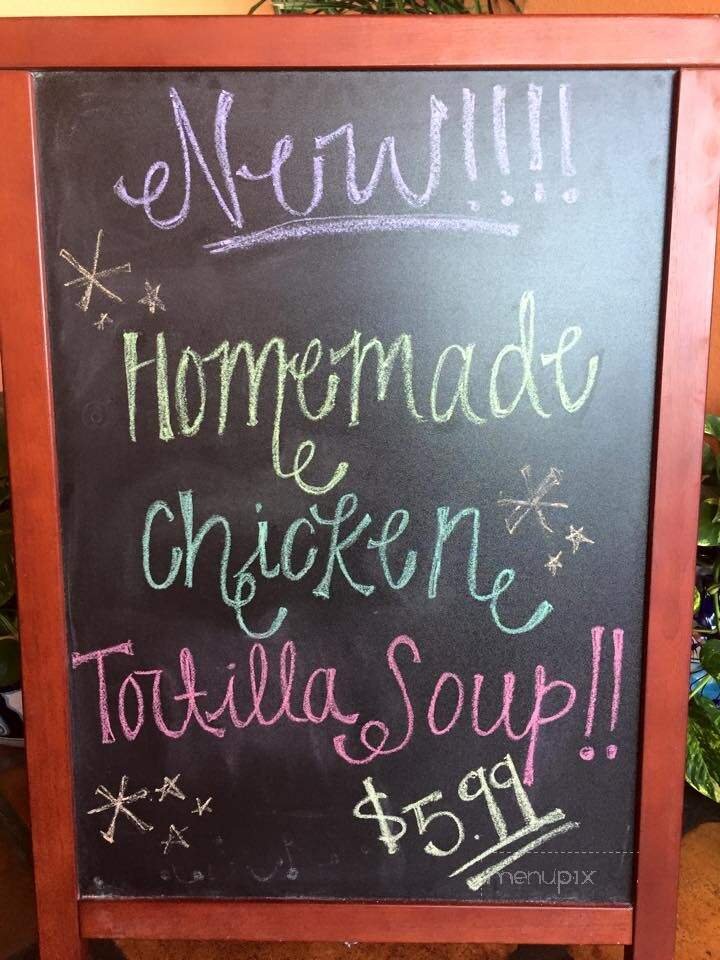 New!!!!
Homemade
Chicken
Tortilla Soup!!
$5.99
menupix